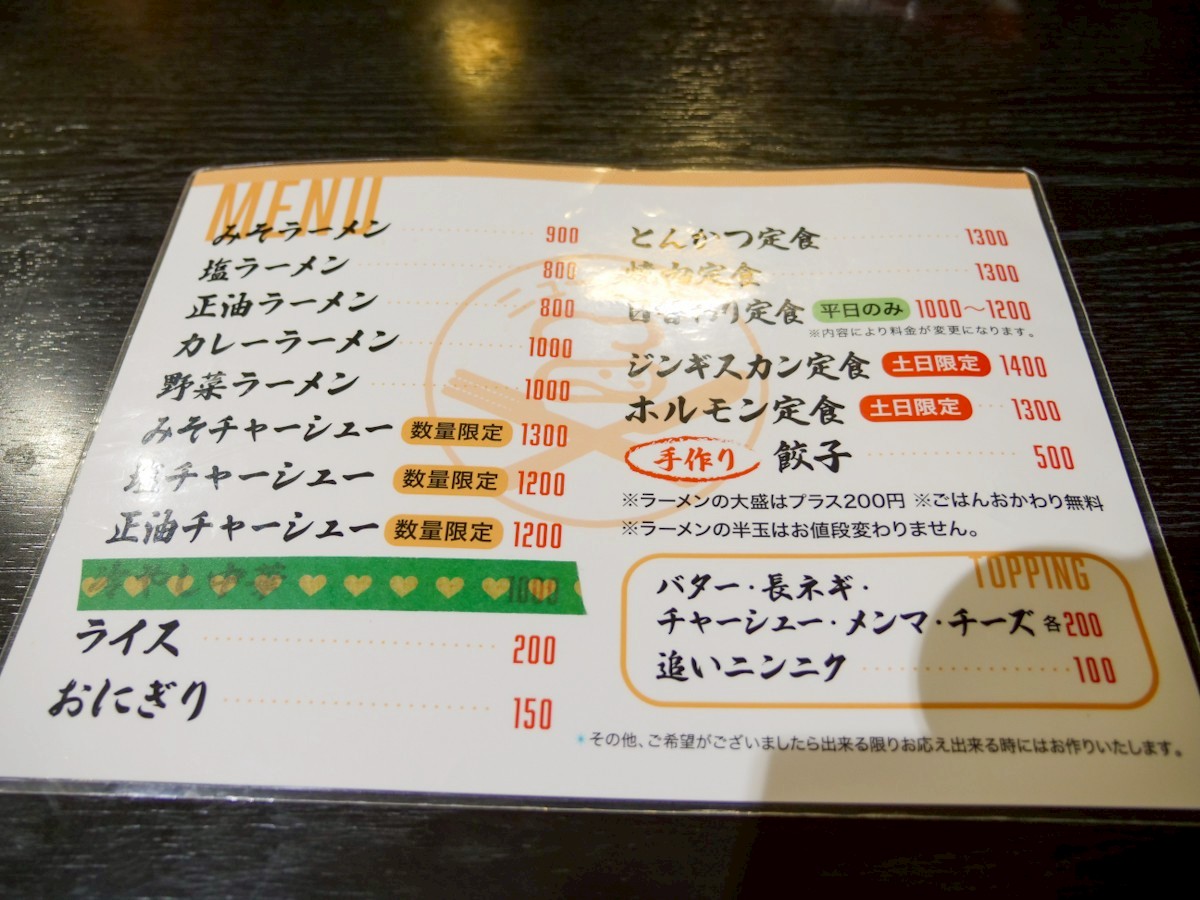 MENU
みそラーメン 900
塩ラーメン 800
正油ラーメン 800
カレーラーメン 1000
野菜ラーメン 1000
みそチャーシュー 数量限定 1300
塩チャーシュー 数量限定 1200
正油チャーシュー 数量限定 1200
冷やし中華 1000
ライス 200
おにぎり 150
とんかつ定食 1300
定食 1300
日替わり定食 平日のみ 1000～1200
※内容により料金が変更になります。
ジンギスカン定食 土日限定 1400
ホルモン定食 土日限定 1300
手作り 餃子 500
※ラーメンの大盛はプラス200円 ※ごはんおかわり無料
※ラーメンの半玉はお値段変わりません。
TOPPING
バター・長ネギ・
チャーシュー・メンマ・チーズ 各200
追いニンニク 100
*その他、ご希望がございましたら出来る限りお応え出来る時にはお作りいたします。